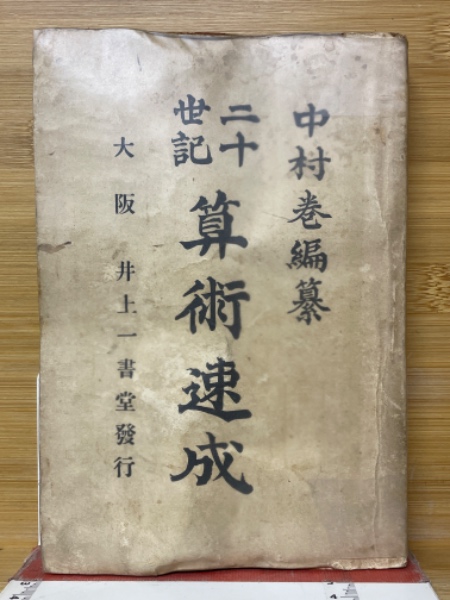 中村巻編纂
二十
世記
算術速成
大阪 井上一書堂發行